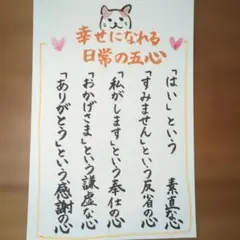 幸せになれる
日常の五心
「はい」という 素直な心
「すみません」という反省の心
「私がします」という奉仕の心
「おかげさま」という謙虚な心
「ありがとう」という感謝の心